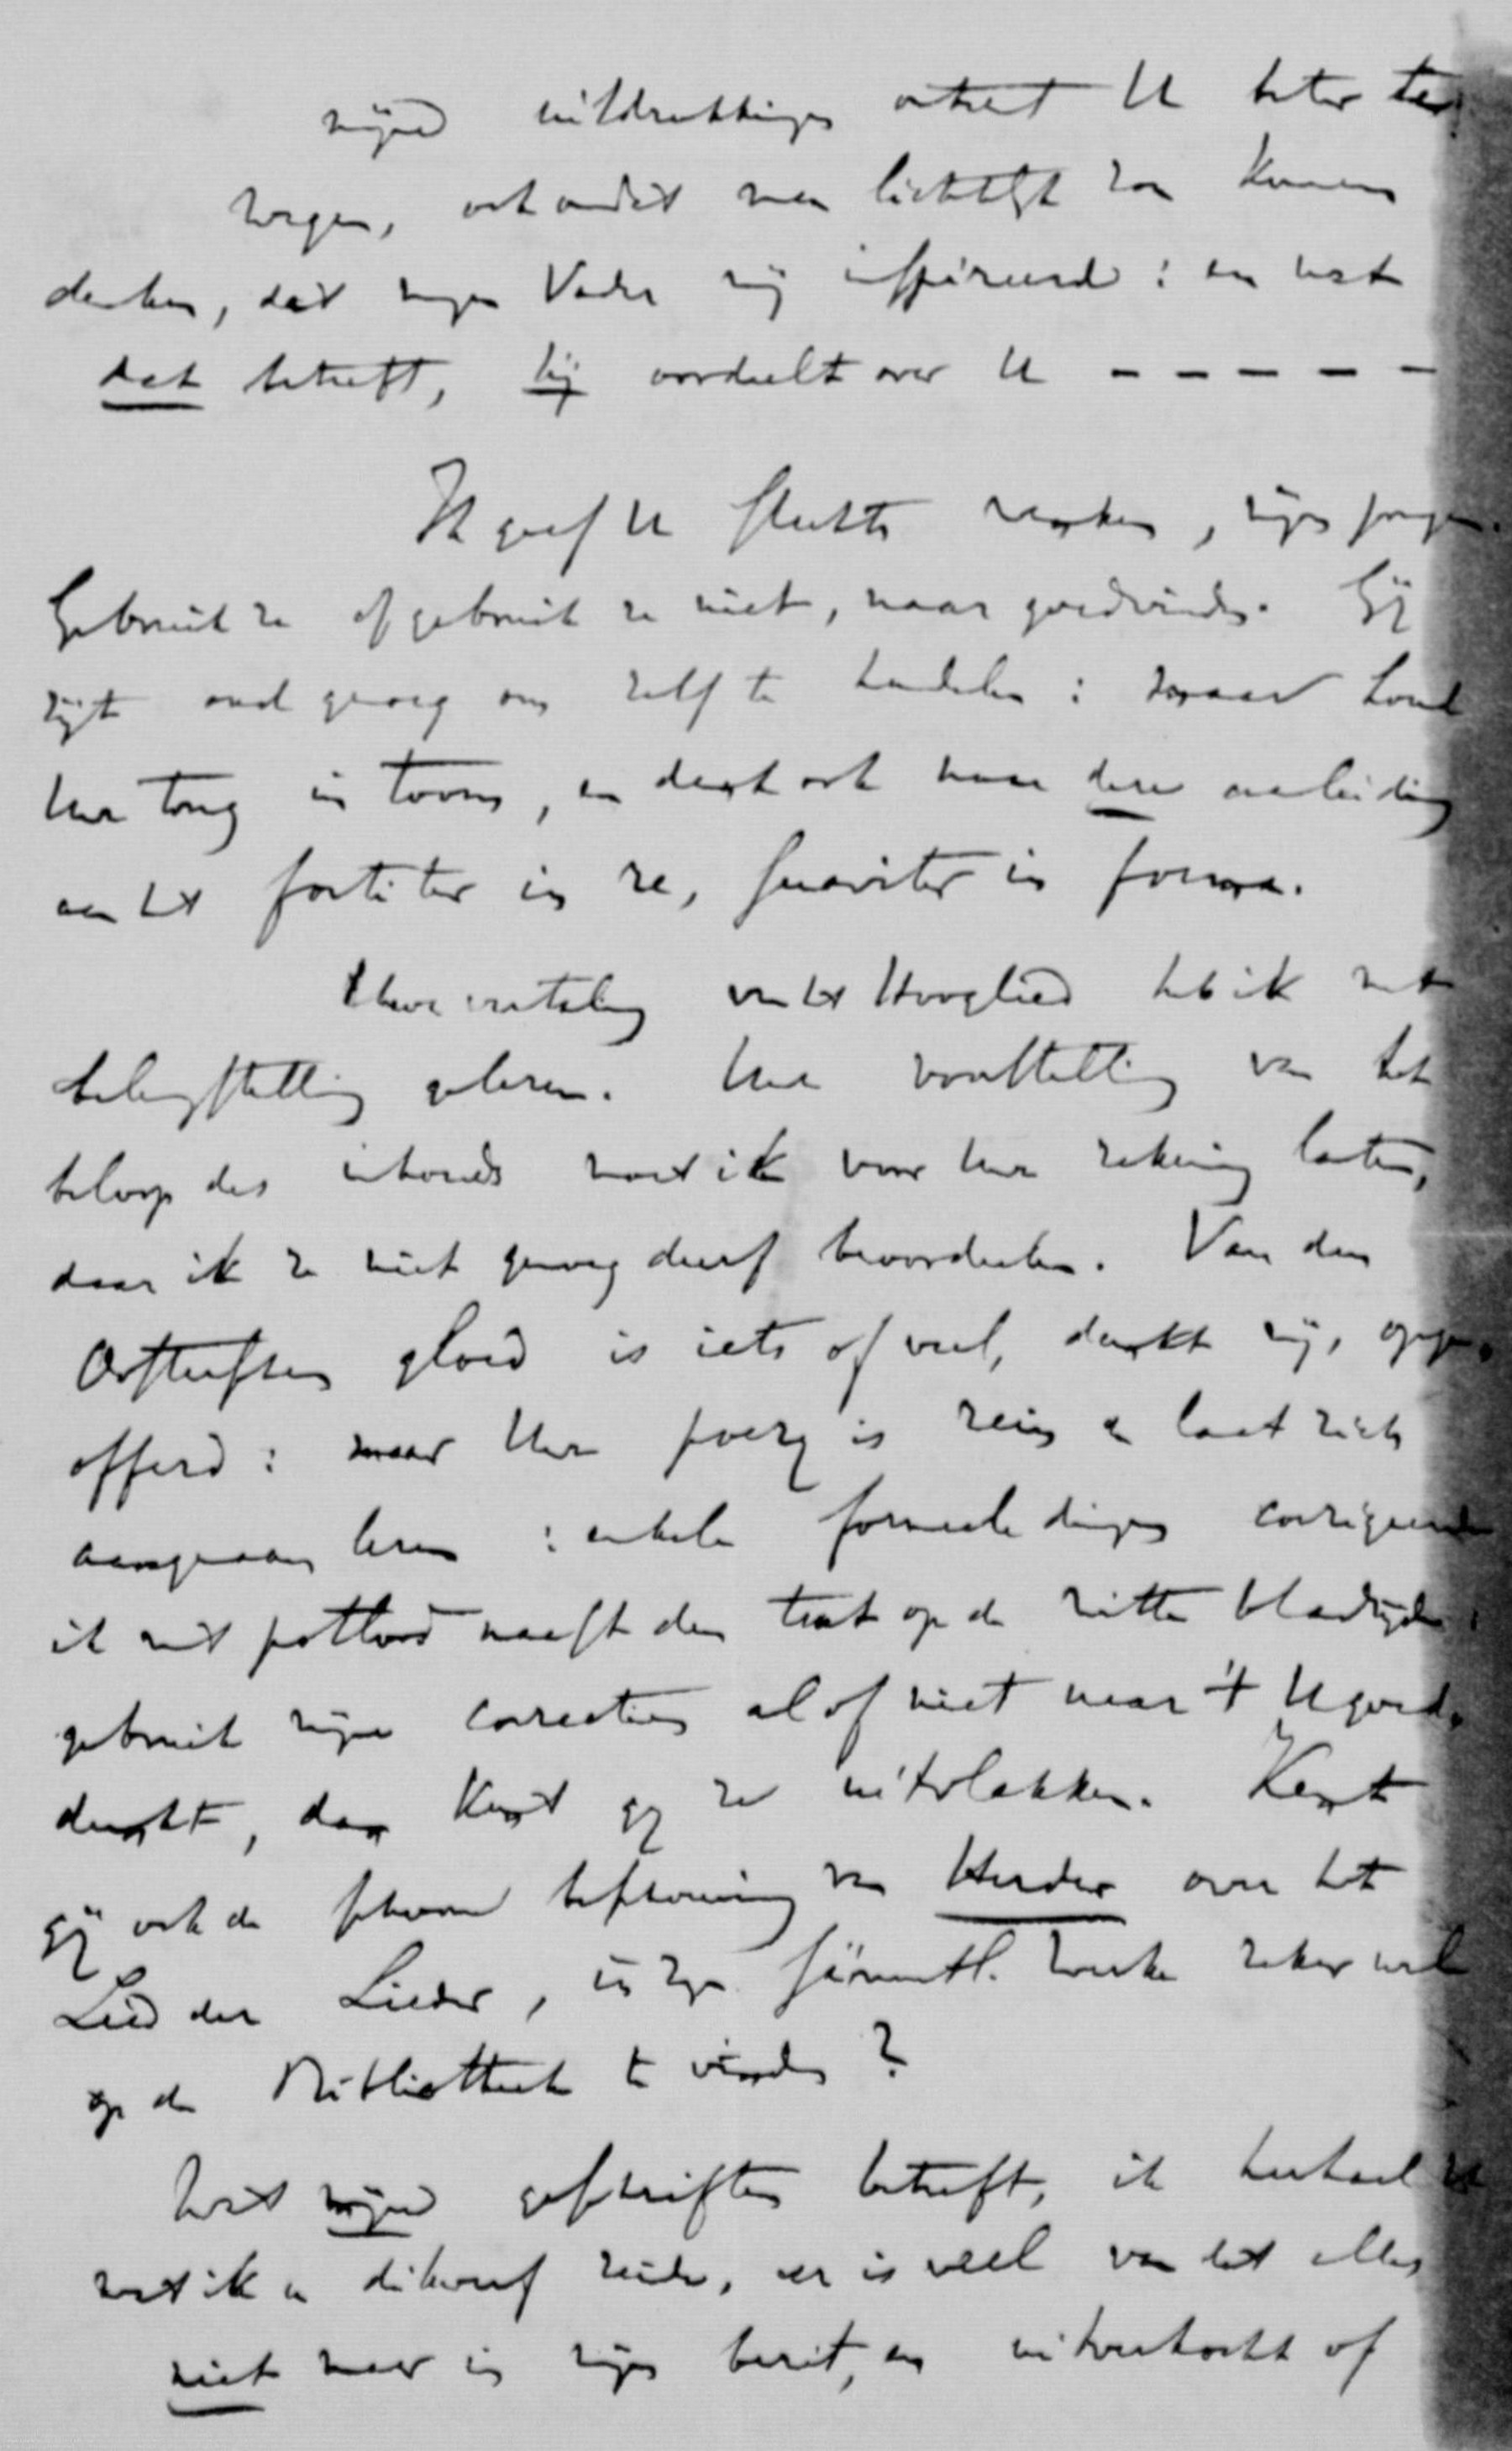 mijne uitdrukkingen omtrent U beter te
zorgen, ook omdat men lichtelijk zou kunnen
denken, dat mijn Vader mij inspireerde: en wat
dat betreft, hij oordeelt over U - - - - -
Ik geef U slechts wenken, mijn jongen.
Gebruik ze of gebruik ze niet, naar goedvinden. Gij
zijt oud genoeg om zelf te handelen: maar houd
Uw tong in toom, en denk ook naar deze aanleiding
aan het fortiter in re, suaviter in forma.
Uwe vertaling van het Hooglied heb ik met
belangstelling gelezen. Uwe voorstelling van het
beloop des inhouds moet ik voor Uwe rekening laten,
daar ik ze niet genoeg durf beoordeelen. Van den
Oosterschen gloed is iets of veel, dunkt mij, opge-
offerd: maar Uwe poezy is rein en laat zich
aangenaam lezen: enkele formeele dingen corrigeerde
ik met potlood naast den tekst op de witte bladzijde:
gebruik mijne correcties al of niet naar 't U goed-
dunkt, dan kunt gij ze uitvlakken. Kent
gij ook de schoone beschouwing van Herder over het
Lied der Lieder, in zijn sämmtl. Werke zeker wel
op de Bibliotheek te vinden?
Wat mijne geschriften betreft, ik herhaal U
wat ik u dikwerf zeide, er is veel van dat alles
niet meer in mijn bezit, en uitverkocht of